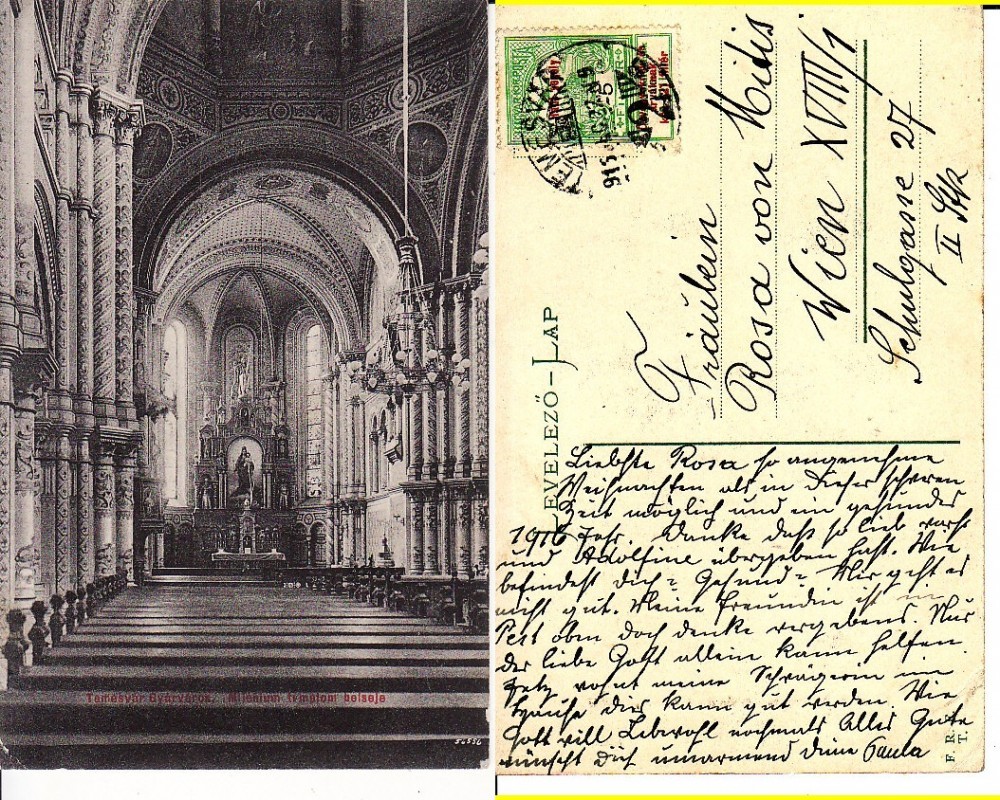 Temesvár Gyárváros. Milenium templom belseje
LEVELEZŐ-LAP
Fräulein
Rosa von Mitis
Wien XVIII/1
Schulgasse 27
II Stk
Liebste Rosa so angenehme
Weihnachten als in dieser schweren
Zeit möglich und ein gesundes
1916 Jahr. Danke daß so lieb warst
und Adolfine übergeben hast. Wie
befindest Dich? Gesund? Mir geht es
nicht gut. Meine Freundin ist in
Pest oben doch denke vergebens. Nur
der liebe Gott allein kann helfen.
meine Schwägerin im
Hause dies kann gut werden. Wie
Gott will Lebewohl nochmals Alles Gute
wünscht Dich umarmend deine Paula